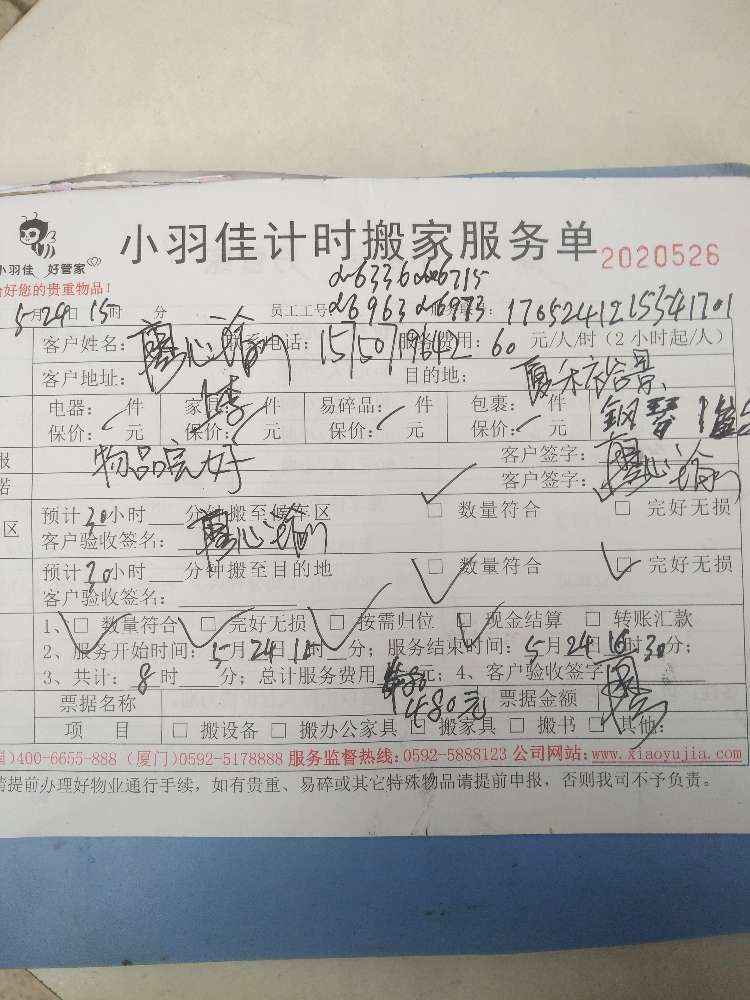 小羽佳 好管家
小羽佳计时搬家服务单 2020526
好您的贵重物品！
d-6336 d-6715
5月24日15时 分 员工工号 d6963 d6973 1705241215341701
客户姓名： 联系电话：15750719642 服务费用：60 元/人/时（2小时起/人）
客户地址： 目的地：
电器： 件 家具： 件 易碎品： 件 包裹： 件 钢琴1
保价： 元 保价： 元 保价： 元 保价： 元
报 物品完好 客户签字：
诺 客户签字：
预计30小时 分钟搬至候车区 □ 数量符合 □ 完好无损
区 客户验收签名：
预计30小时 分钟搬至目的地 □ 数量符合 □ 完好无损
客户验收签名：
1、□ 数量符合 □ 完好无损 □ 按需归位 □ 现金结算 □ 转账汇款
2、服务开始时间：5月24日 时 分；服务结束时间：5月24日16时30分；
3、共计：8时 分；总计服务费用 元；4、客户验收签字
480元
票据名称 票据金额
项 目 □ 搬设备 □ 搬办公家具 □ 搬家具 □ 搬书 □ 其他：
)400-6655-888 (厦门)0592-5178888 服务监督热线：0592-5888123 公司网站：www.xiaoyujia.com
请提前办理好物业通行手续，如有贵重、易碎或其它特殊物品请提前申报，否则我司不予负责。